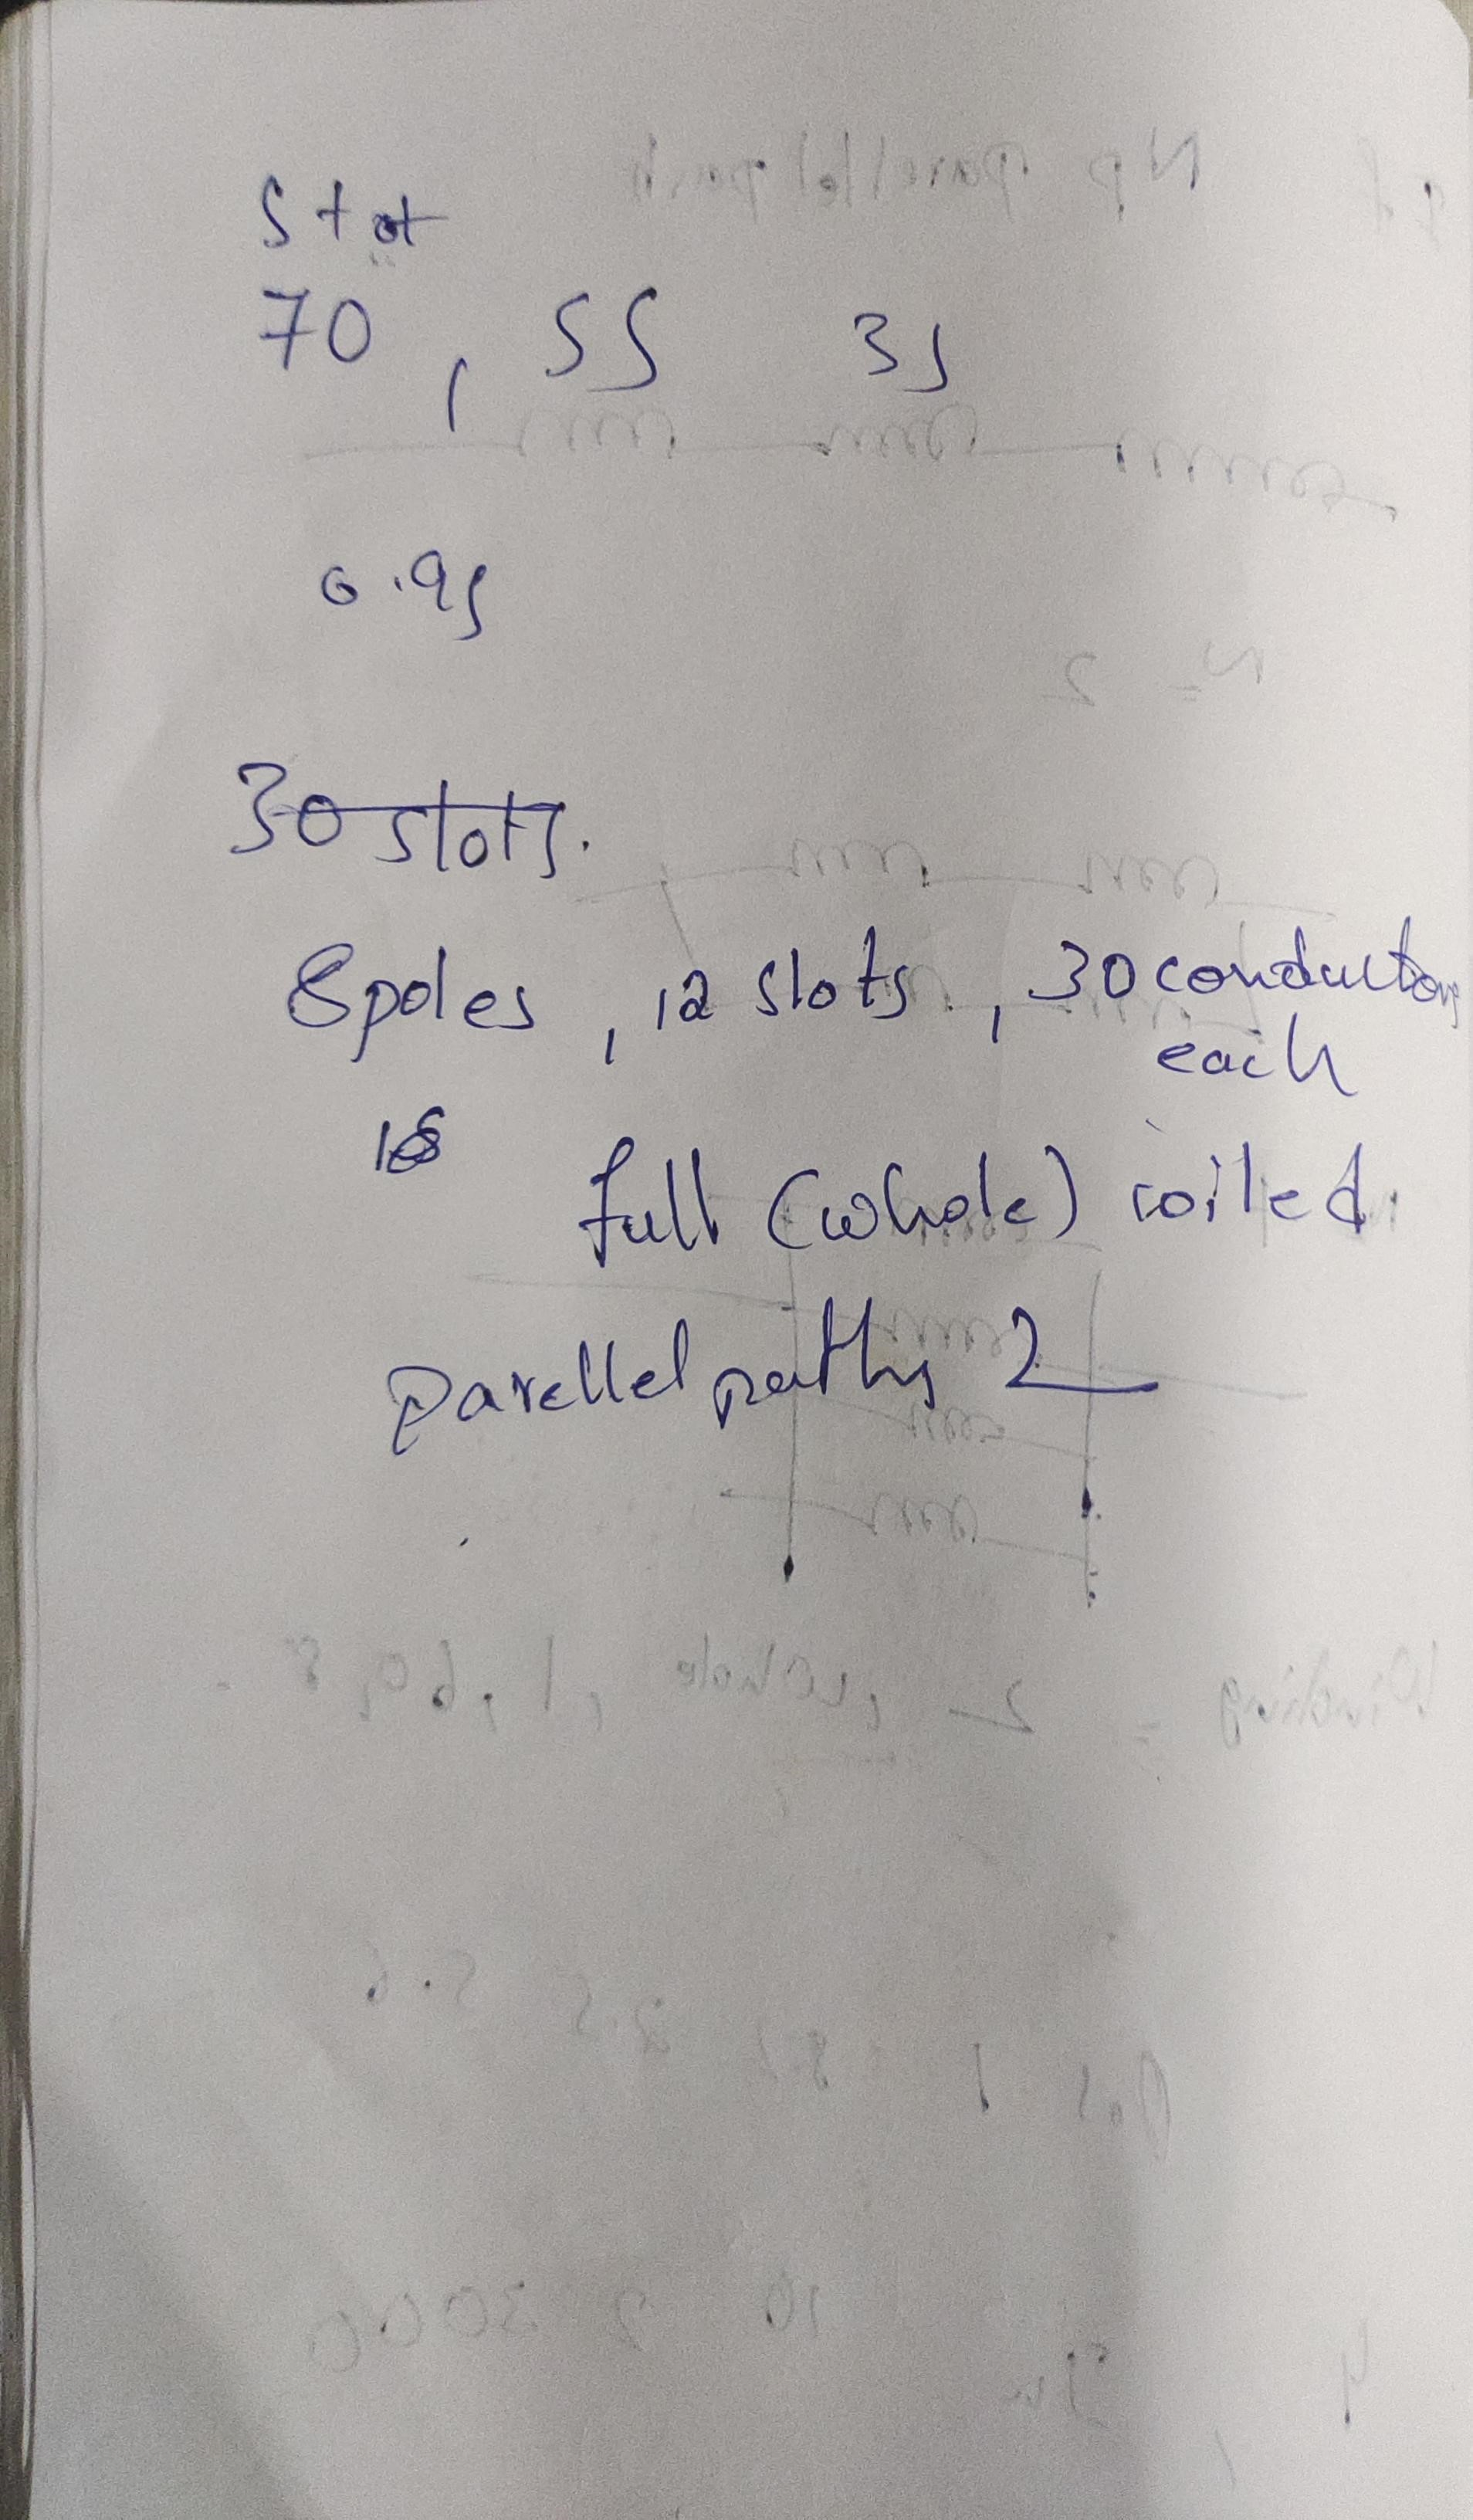 Stat
70 , 55 35
0.95
30 slots.
8 poles , 12 slots , 30 conductors
each
full (whole) coiled
parellel paths 2